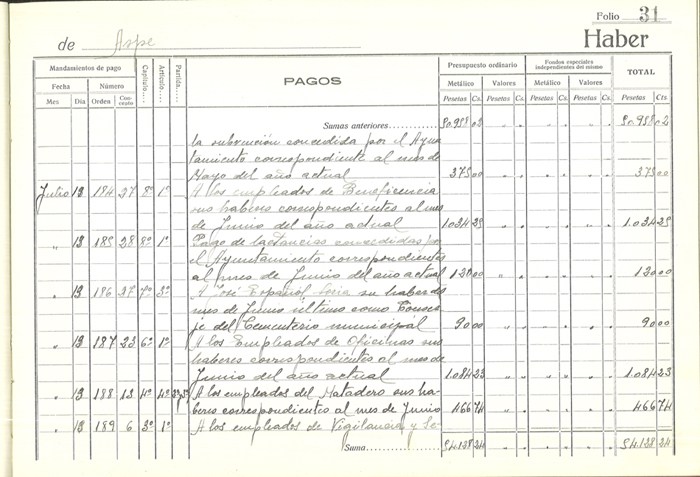 Folio 31
de Aspe Haber
Mandamientos de pago Capítulo.... Artículo.... Partida.... PAGOS Presupuesto ordinario Fondos especiales independientes del mismo TOTAL
Fecha Número Metálico Valores Metálico Valores
Mes Dia Orden Con-cepto Pesetas Cs. Pesetas Cs. Pesetas Cs. Pesetas Cs. Pesetas Cts
Sumas anteriores 50.958 02 " " " " " " 50.958 02
la subvención concedida por el Ayun
tamiento correspondiente al mes de
Mayo del año actual 375 00 " " " " " " 375 00
Julio 13 184 27 8º 1º A los empleados de Beneficencia
sus haberes correspondientes al mes
de Junio del año actual 1.034 25 " " " " " " 1.034 25
" 13 185 28 8º 1º Pago de lactancias concedidas por
el Ayuntamiento correspondientes
al mes de Junio del año actual 120 00 " " " " " " 120 00
" 13 186 27 7º 3º A José Español Soria su haber del
mes de Junio último como Conser
je del Cementerio municipal 90 00 " " " " " " 90 00
" 13 187 23 6º 1º A los Empleados de Oficinas sus
haberes correspondientes al mes de
Junio del año actual 1.084 23 " " " " " " 1.084 23
" 13 188 13 4º 4º A los empleados del Matadero sus ha
beres correspondientes al mes de Junio 466 74 " " " " " " 466 74
" 13 189 6 3º 1º A los empleados de Vigilancia y Se-
Suma 54.128 24 " " " " " " 54.128 24